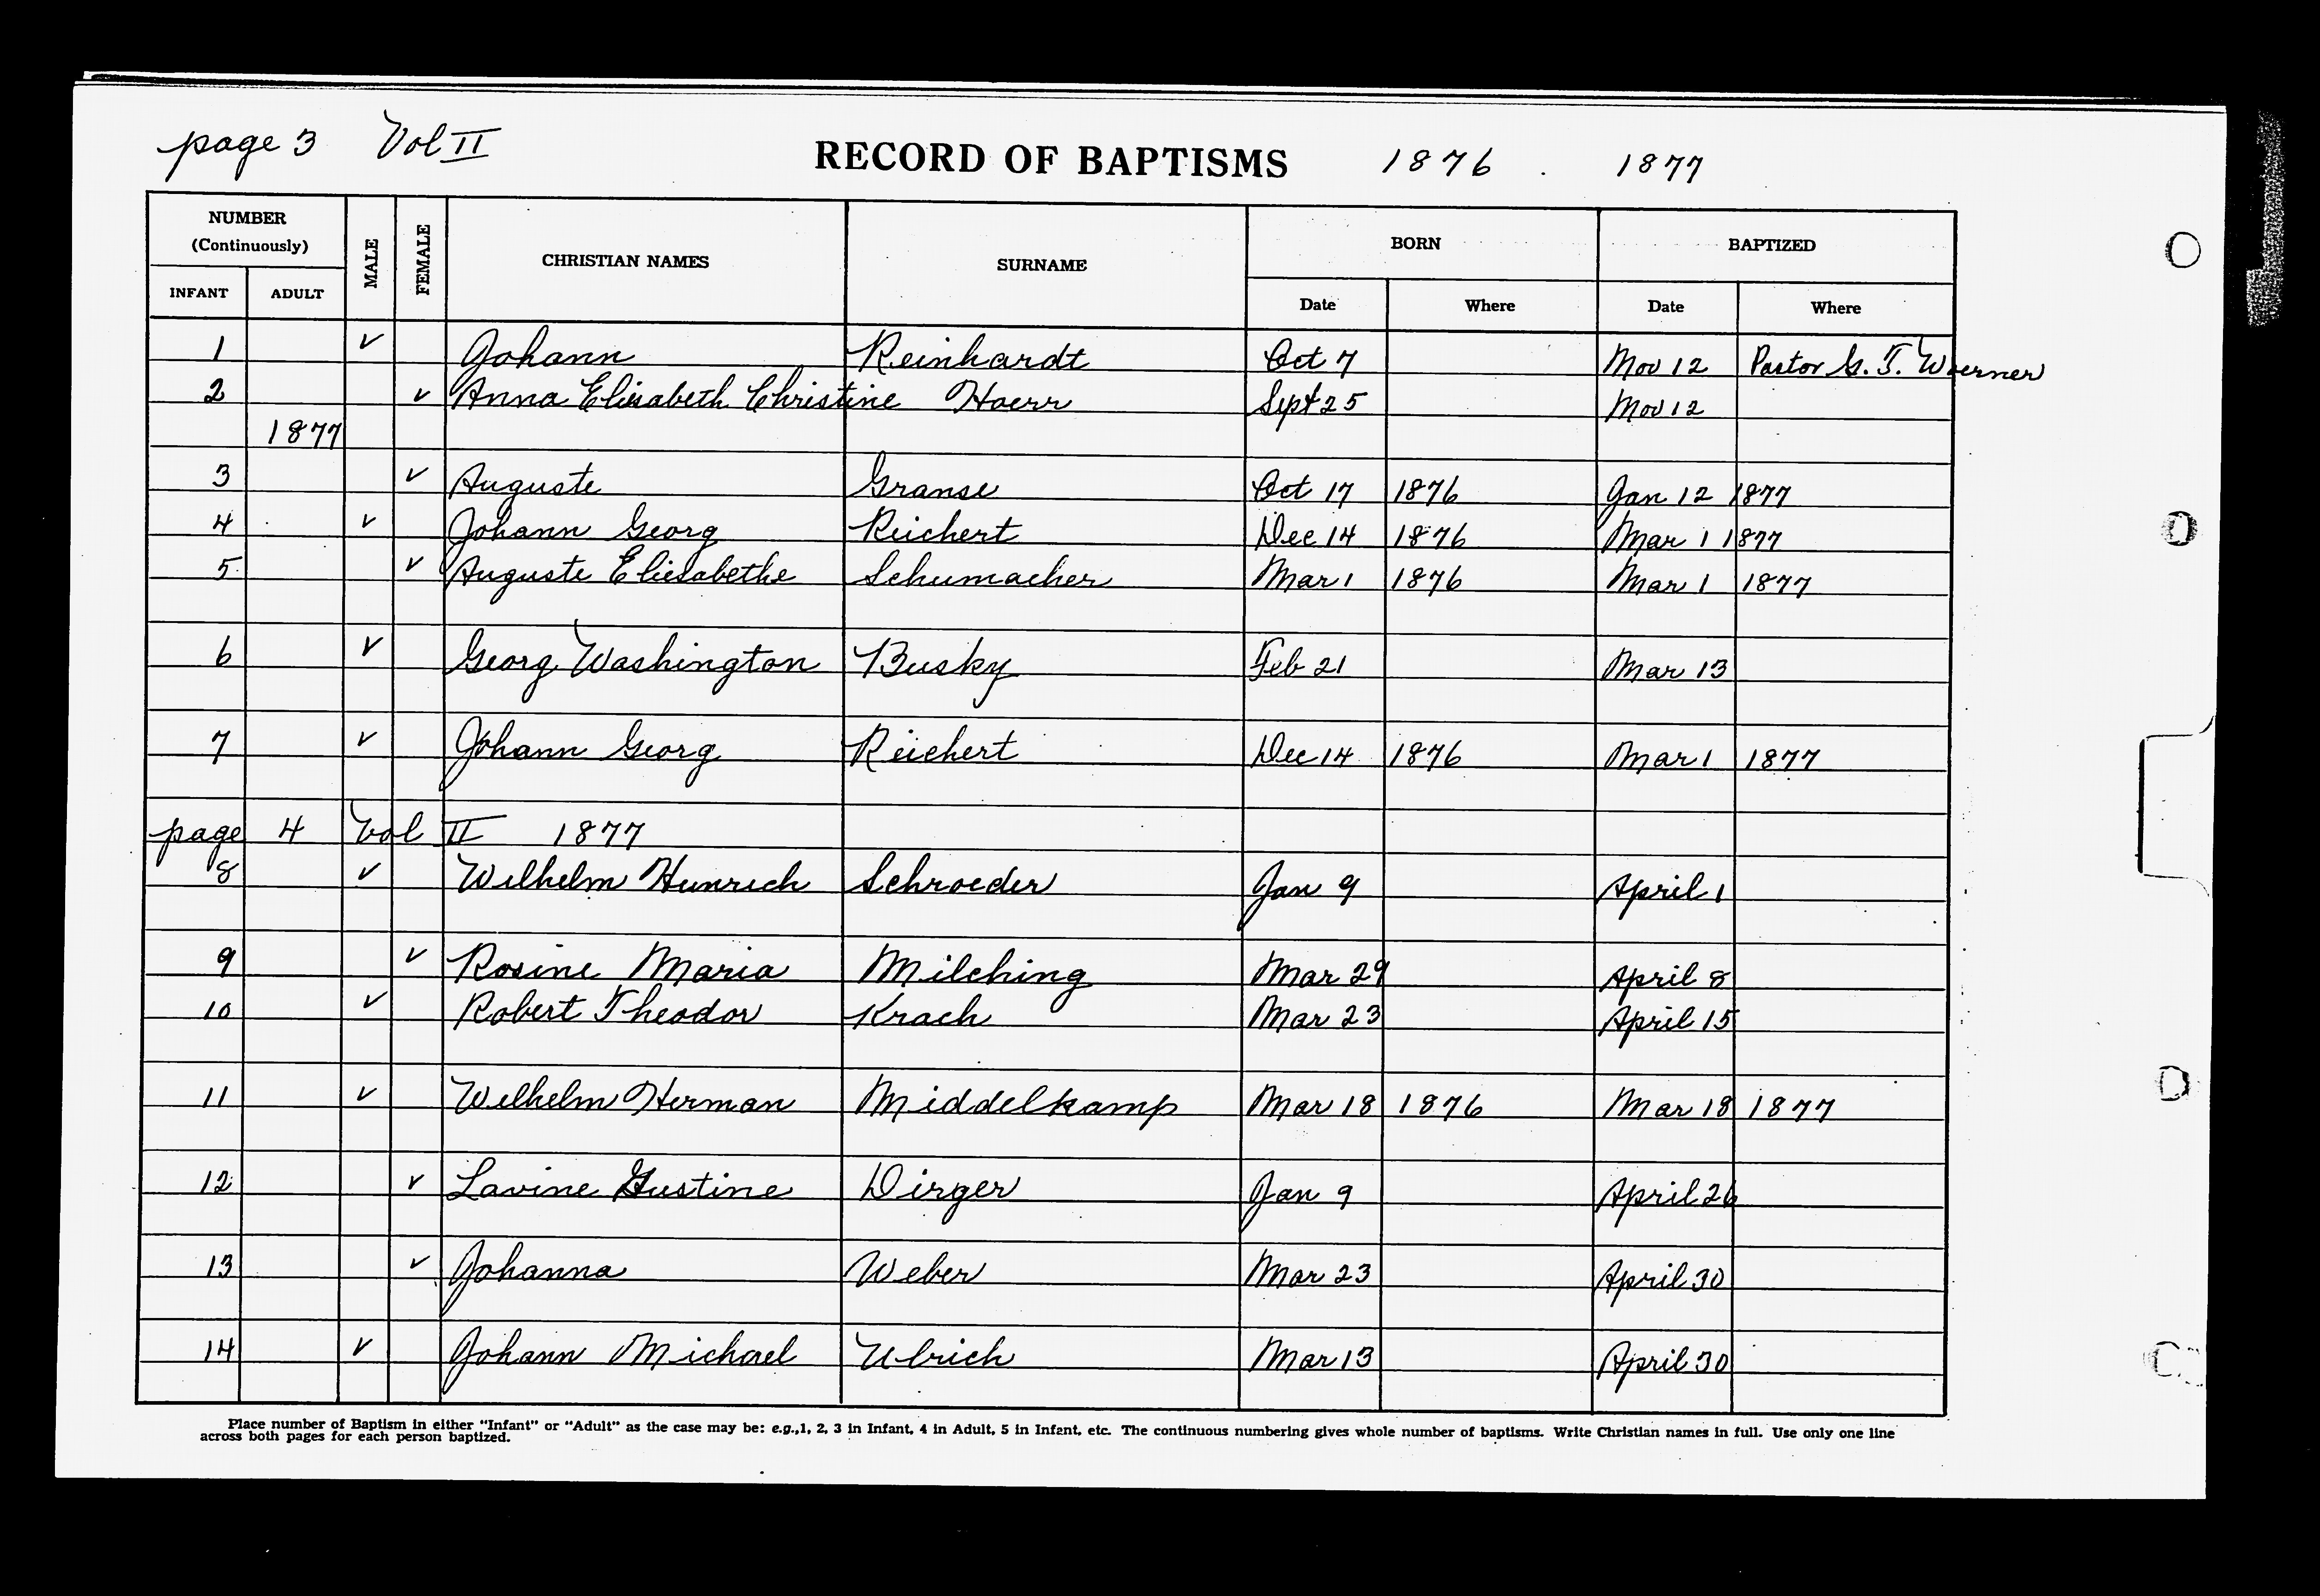 page 3 Vol II RECORD OF BAPTISMS 1876 . 1877
NUMBER (Continuously) MALE FEMALE CHRISTIAN NAMES SURNAME BORN BAPTIZED
INFANT ADULT Date Where Date Where
1 ✓ Johann Reinhardt Oct 7 Nov 12 Pastor G. F. Woerner
2 ✓ Anna Elisabeth Christine Hoerr Sept 25 Nov 12
1877
3 ✓ Auguste Granse Oct 17 1876 Jan 12 1877
4 ✓ Johann Georg Reichert Dec 14 1876 Mar 1 1877
5 ✓ Auguste Eliesabethe Schumacher Mar 1 1876 Mar 1 1877
6 ✓ Georg Washington Busky Feb 21 Mar 13
7 ✓ Johann Georg Reichert Dec 14 1876 Mar 1 1877
page 4 Vol II 1877
8 ✓ Wilhelm Heinrich Schroeder Jan 9 April 1
9 ✓ Rosine Maria Milching Mar 29 April 8
10 ✓ Robert Theodor Krach Mar 23 April 15
11 ✓ Wilhelm Herman Middelkamp Mar 18 1876 Mar 18 1877
12 ✓ Lavine Gustine Dirger Jan 9 April 26
13 ✓ Johanna Weber Mar 23 April 30
14 ✓ Johann Michael Ulrich Mar 13 April 30
Place number of Baptism in either "Infant" or "Adult" as the case may be: e.g.,1, 2, 3 in Infant, 4 in Adult, 5 in Infant, etc. The continuous numbering gives whole number of baptisms. Write Christian names in full. Use only one line
across both pages for each person baptized.